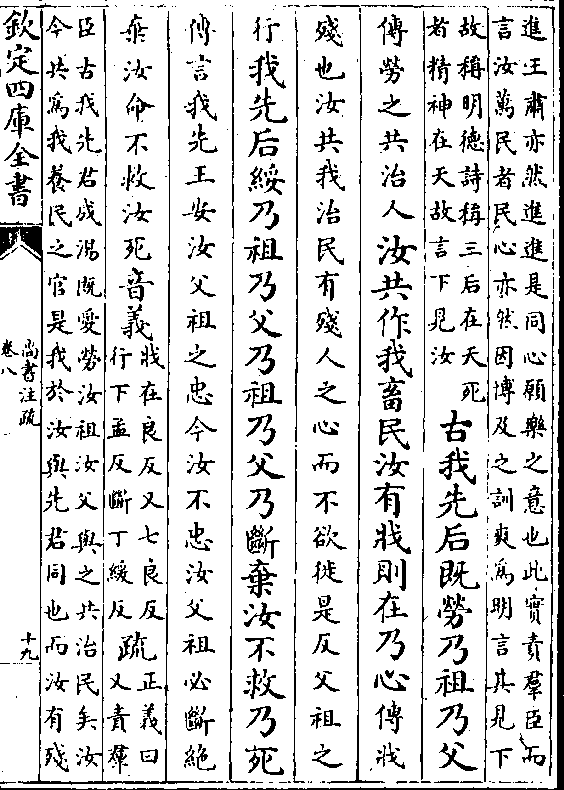 進王肅亦然進進是同心願樂之意也此實責羣臣而
言汝萬民者民心亦然因博及之訓爽為明言其見下
故稱明德詩稱三后在天死
者精神在天故言下見汝
古我先后既勞乃祖乃父
傳勞之共治人汝共作我畜民汝有戕則在乃心傳戕
殘也汝共我治民有殘人之心而不欲徙是反父祖之
行我先后綏乃祖乃父乃祖乃父乃斷棄汝不救乃死
傳言我先王安汝父祖之忠今汝不忠汝父祖必斷絕
棄汝命不救汝死音義
戕在良反又七良反
行下孟反斷丁緩反
疏
正義曰
又責羣
臣古我先君成湯既愛勞汝祖汝父與之共治民矣汝
今共為我養民之官是我於汝與先君同也而汝有殘
欽定四庫全書
尚書注疏
卷八
十九